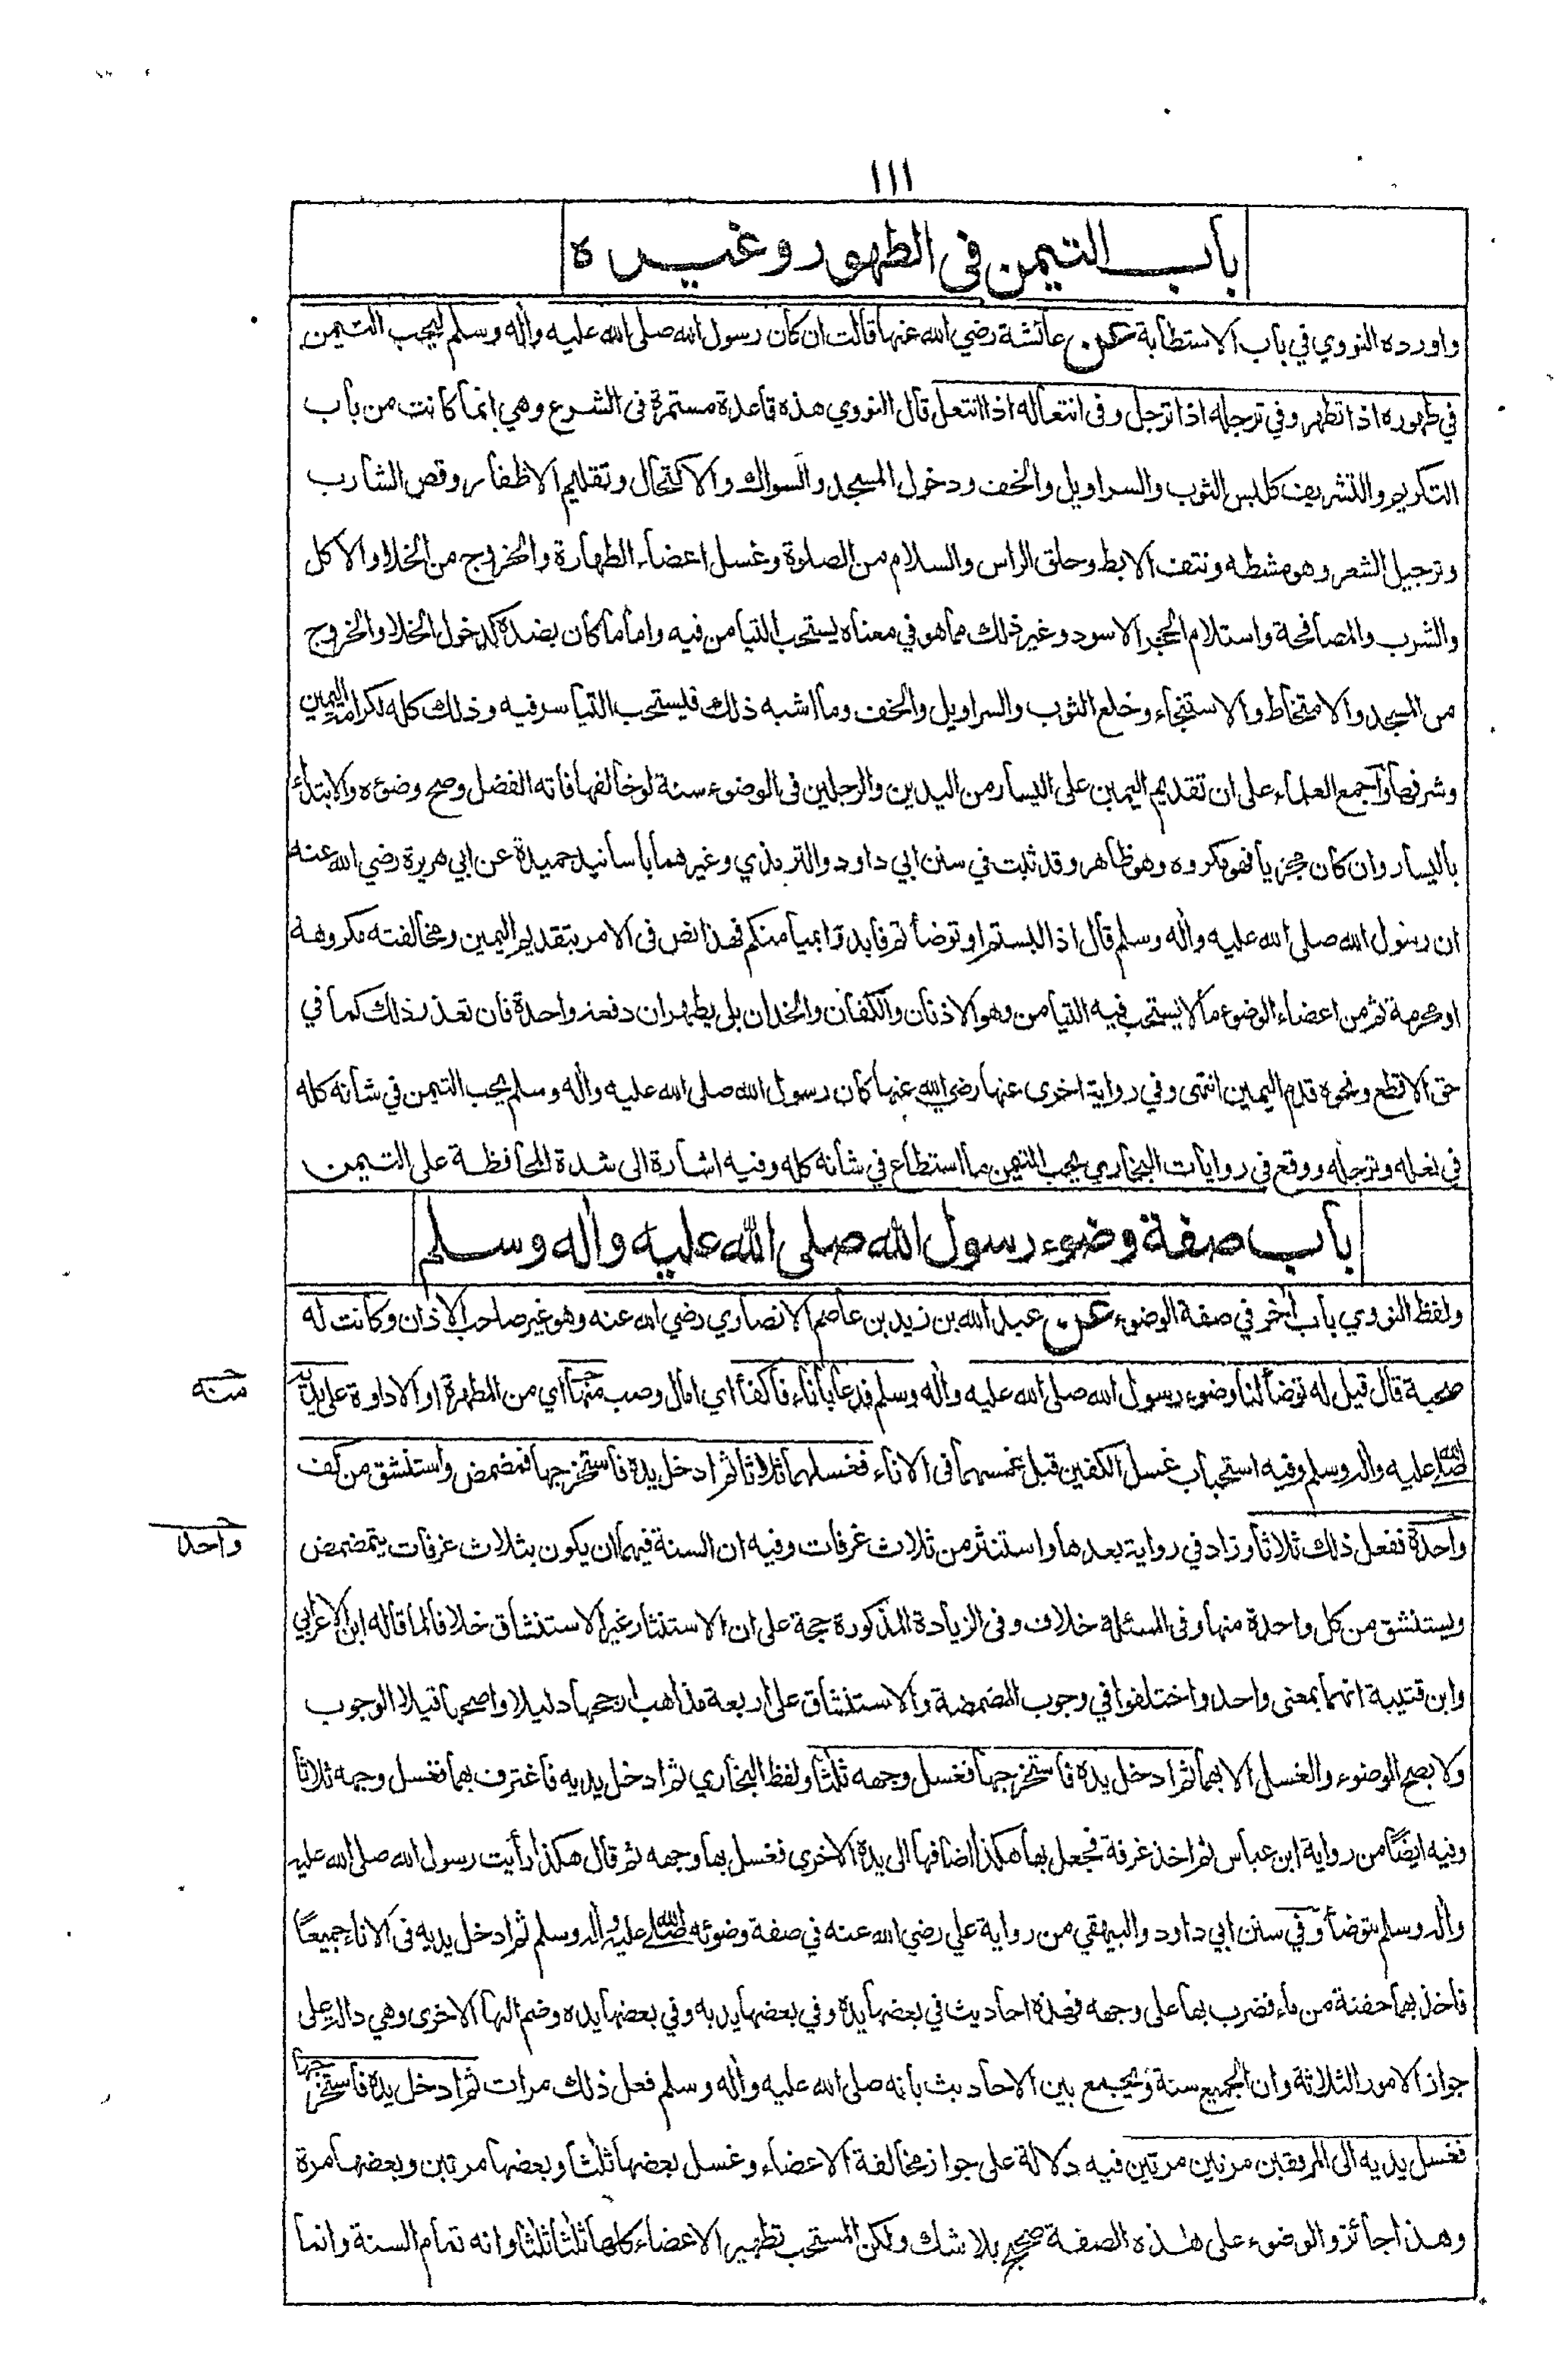 ١١١
باب التيمن فى الطهور وغيره
واورده النووي في باب الاستطابة عن عائشة رضي الله عنها قالت ان كان رسول الله صلى الله عليه واٰله وسلم ليحب التيمن
في طهوره اذا تطهر وفي ترجله اذا ترجل وفى انتعاله اذا انتعل قال النووي هذه قاعدة مستمرة فى الشرع وهي انما كانت من باب
التكريم والتشريف كلبس الثوب والسراويل والخف ودخول المسجد والسواك والاكتحال وتقليم الاظفار وقص الشارب
وترجيل الشعر وهو مشطه ونتف الابط وحلق الراس والسلام من الصلوة وغسل اعضاء الطهارة والخروج من الخلا والاكل
والشرب والمصافحة واستلام الحجر الاسود وغير ذلك مما هو في معناه يستحب التيامن فيه واما ما كان بضده كدخول الخلا والخروج
من المسجد والامتخاط والاستنجاء وخلع الثوب والسراويل والخف وما اشبه ذلك فليستحب التياسر فيه وذلك كله لكرامة اليمين
وشرفها واجمع العلماء على ان تقديم اليمين على اليسار من اليدين والرجلين فى الوضوء سنة لو خالفها فاته الفضل وصح وضوءه والابتداء
باليسار وان كان مجزيا فهو مكروه وهو ظاهر وقد ثبت في سنن ابي داود والترمذي وغيرهما باسانيد حميدة عن ابي هريرة رضي الله عنه
ان رسول الله صلى الله عليه واٰله وسلم قال اذا لبستم او توضأتم فابدؤا بميامنكم فهذا نص فى الامر بتقديم اليمين ومخالفته مكروهة
او محرمة ثم من اعضاء الوضوء ما لا يستحب فيه التيامن وهو الاذنان والكفان والخدان بلى يطهران دفعة واحدة فان تعذر ذلك كما في
حق الاقطع ونحوه قدم اليمين انتهى وفي رواية اخرى عنها رضي الله عنها كان رسول الله صلى الله عليه واٰله وسلم يحب التيمن في شانه كله
في نعله وترجله ووقع فى روايات البخاري يحب التيمن ما استطاع في شانه كله وفيه اشارة الى شدة المحافظة على التيمن
باب صفة وضوء رسول الله صلى الله عليه واٰله وسلم
ولفظ النووي باب اٰخر في صفة الوضوء عن عبد الله بن زيد بن عاصم الانصاري رضي الله عنه وهو غير صاحب الاذان وكانت له
صحبة قال قيل له توضأ لنا وضوء رسول الله صلى الله عليه واٰله وسلم فدعا باناء فاكفأ اي امال وصب منها اي من المطهرة او الاداوة على يديه
منه
صلى الله عليه واٰله وسلم وفيه استحباب غسل الكفين قبل غمسهما فى الاناء فغسلهما ثلاثا ثم ادخل يده فاستخرجها فمضمض واستنشق من كف
واحدة ففعل ذلك ثلاثا وزاد في رواية بعدها واستنثر من ثلاث غرفات وفيه ان السنة فيهما ان يكون بثلاث غرفات يتمضمض
واحد
ويستنشق من كل واحدة منها وفى المسئلة خلاف وفى الزيادة المذكورة حجة على ان الاستنثار غير الاستنشاق خلافا لما قاله ابن الاعرابي
وابن قتيبة انهما بمعنى واحد واختلفوا في وجوب المضمضة والاستنشاق على اربعة مذاهب ارجحها دليلا واصحها قيلا الوجوب
ولا يصح الوضوء والغسل الا بهما ثم ادخل يده فاستخرجها فغسل وجهه ثلٰثا ولفظ البخاري ثم ادخل يديه فاغترف بهما فغسل وجهه ثلاثا
وفيه ايضًا من رواية ابن عباس ثم اخذ غرفة فجعل بها هكذا اضافها الى يده الاخرى فغسل بها وجهه ثم قال هكذا رأيت رسول الله صلى الله عليه
واٰله وسلم يتوضأ وفي سنن ابي داود والبيهقي من رواية علي رضي الله عنه في صفة وضوئه صلى الله عليه واٰله وسلم ثم ادخل يديه فى الاناء جميعًا
فاخذ بهما حفنة من ماء فضرب بها على وجهه فهذه احاديث في بعضها يده وفي بعضها يديه وفي بعضها يده وضم اليها الاخرى وهي دالة على
جواز الامور الثلاثة وان الجميع سنة ويجمع بين الاحاديث بانه صلى الله عليه واٰله وسلم فعل ذلك مرات ثم ادخل يده فاستخرجها
فغسل يديه الى المرفقين مرتين مرتين فيه دلالة على جواز مخالفة الاعضاء وغسل بعضها ثلٰثا وبعضها مرتين وبعضها مرة
وهذا جائز والوضوء على هٰذه الصفة صحيح بلا شك ولكن المستحب تطهير الاعضاء كلها ثلٰثا ثلٰثا وانه تمام السنة وانما